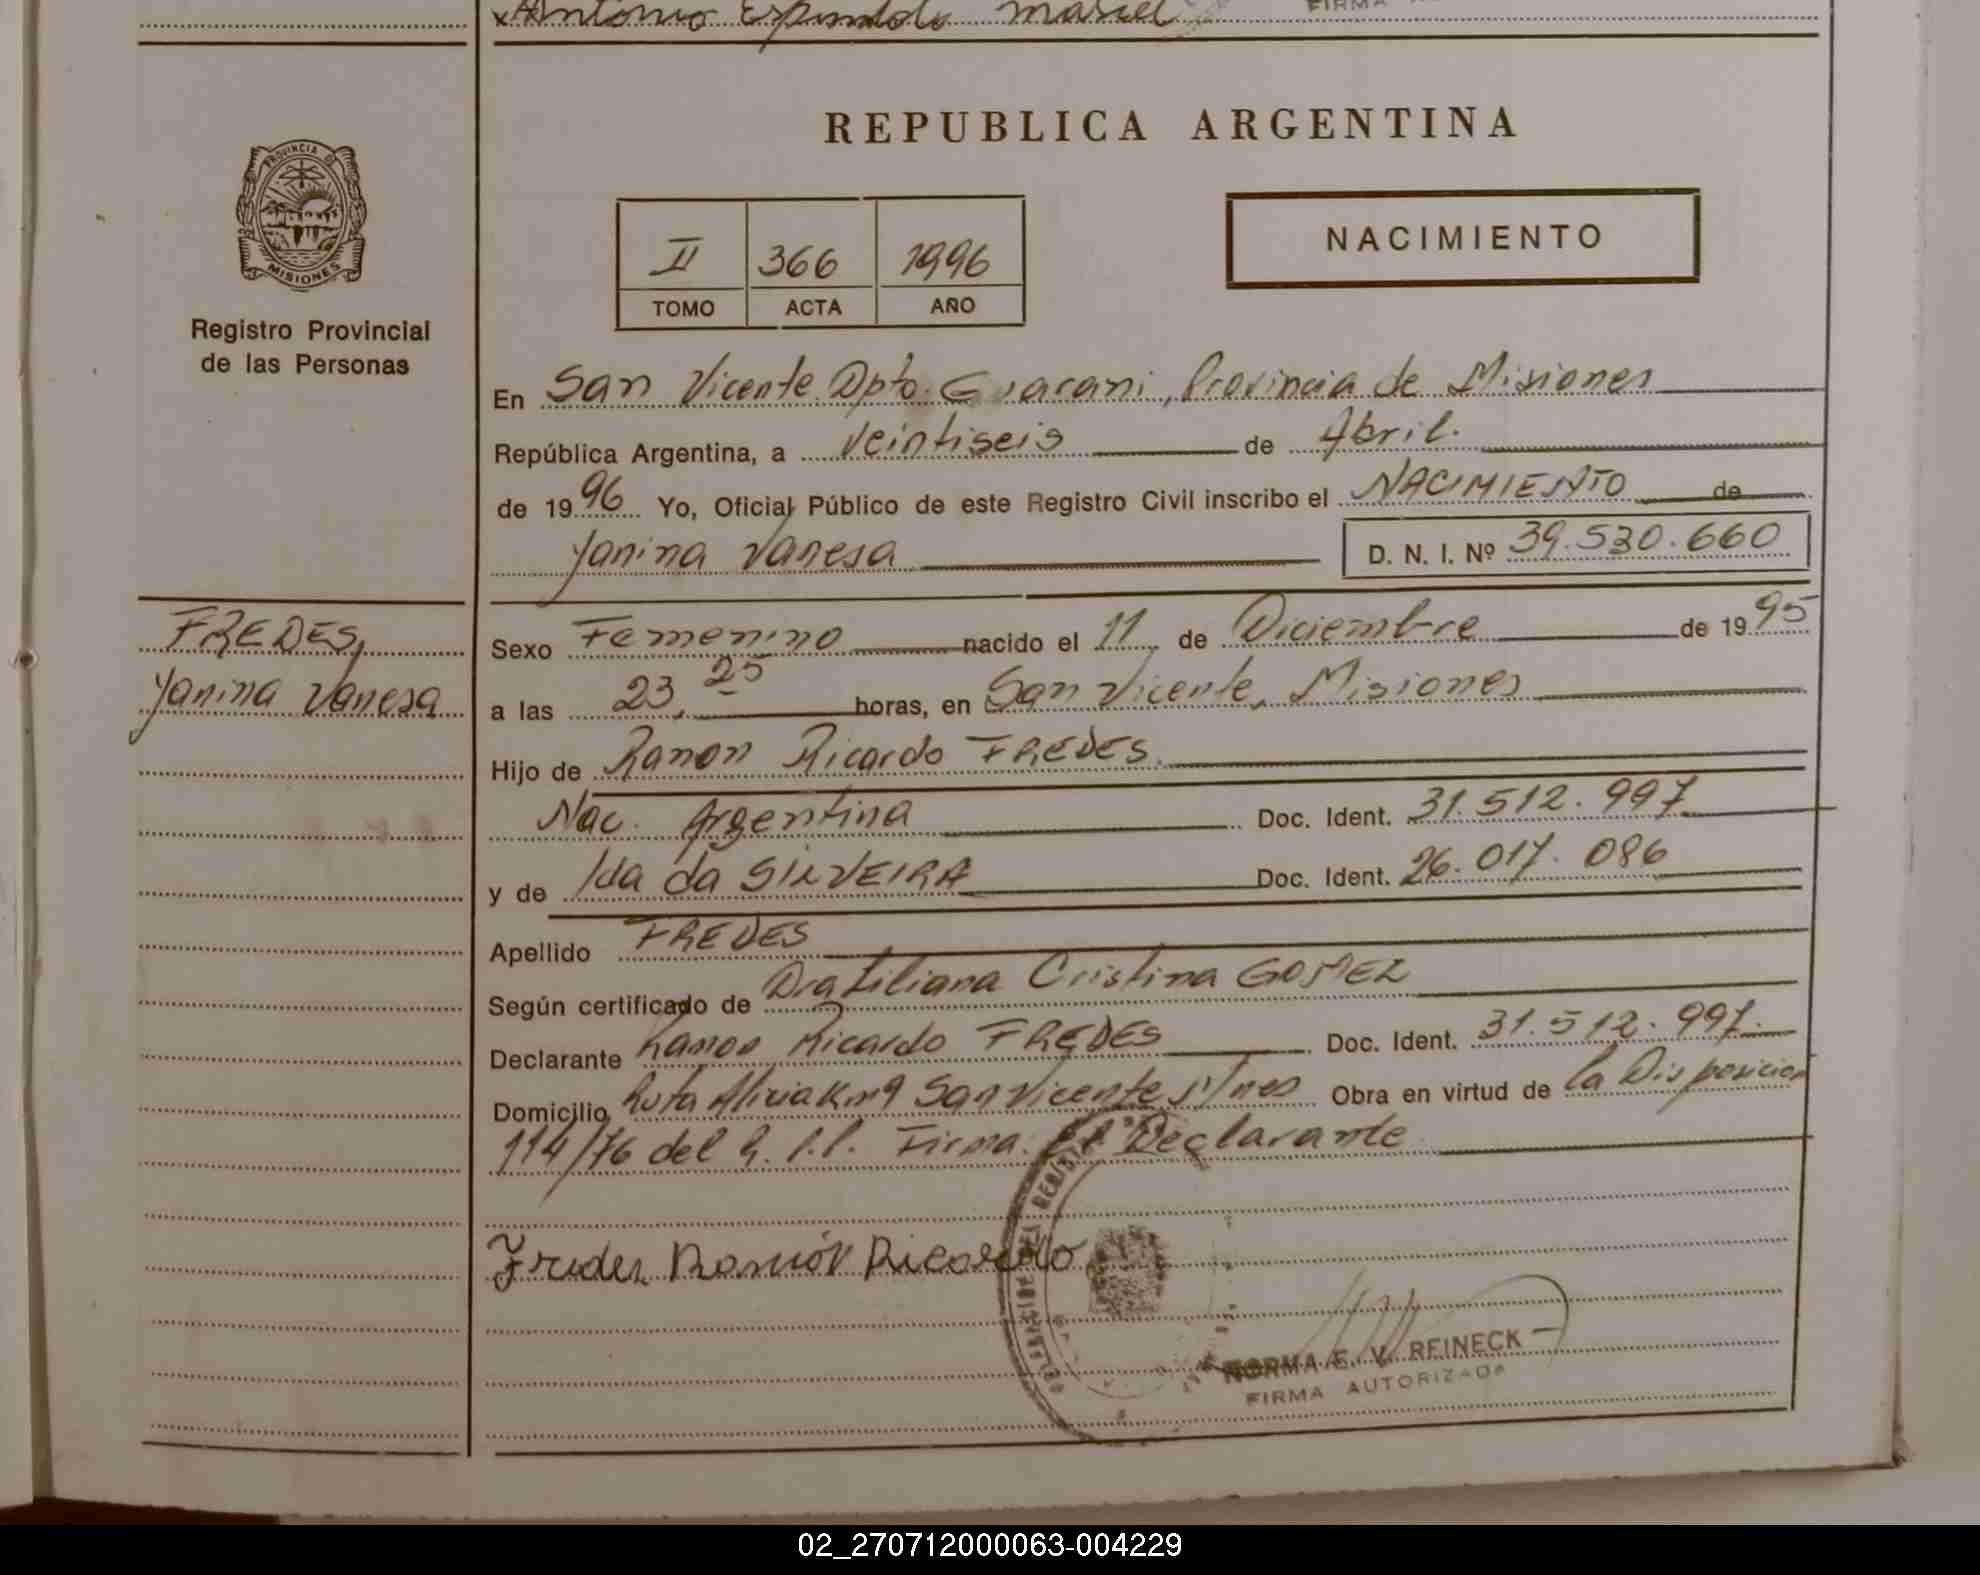 Antonio Espindola Mariel
FIRMA
REPUBLICA ARGENTINA
PROVINCIA DE
MISIONES
Registro Provincial
de las Personas
II 366 1996
TOMO ACTA AÑO
NACIMIENTO
En San Vicente Dpto. Guarani, Provincia de Misiones
República Argentina, a Veintiseis de Abril.
de 1996 Yo, Oficial Público de este Registro Civil inscribo el NACIMIENTO de
Yanina Vanesa D. N. I. Nº 39.530.660
FREDES,
Yanina Vanesa
Sexo Femenino nacido el 11 de Diciembre de 1995
a las 23,25 horas, en San Vicente, Misiones
Hijo de Ramon Ricardo FREDES.
Nac. Argentina Doc. Ident. 31.512.997
y de Ida da SILVEIRA Doc. Ident. 26.017.086
Apellido FREDES
Según certificado de Dra Liliana Cristina GOMEZ
Declarante Ramon Ricardo FREDES Doc. Ident. 31.512.997.
Domicilio Ruta Alicia Km 9 San Vicente Mnes Obra en virtud de la Disposicion
114/76 del R.P.P. Firma: El Declarante
Fredes Ramón Ricardo
NORMA E. V. REINECK
FIRMA AUTORIZADA
02_270712000063-004229